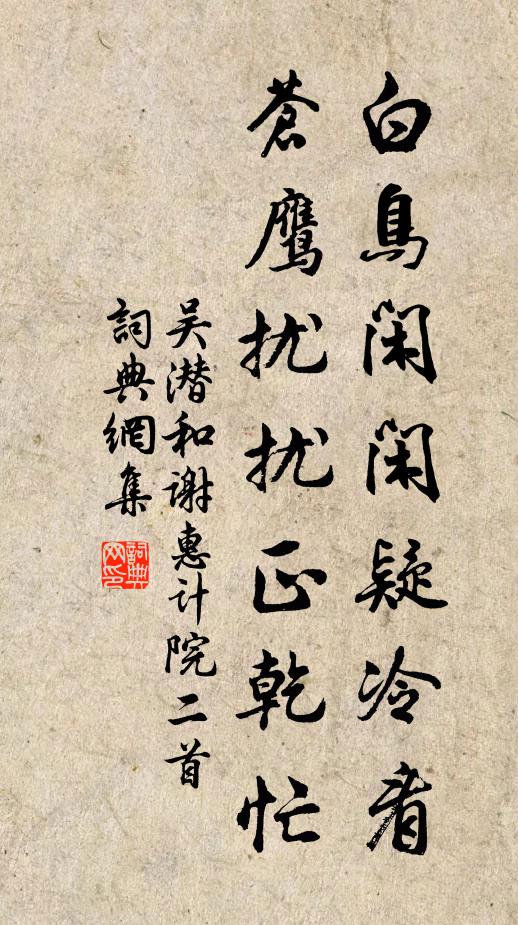 白鳥閑閑疑冷看
蒼鷹扰扰正乾忙
吴潜和谢惠计院二首
詞典網集
詞典
网印